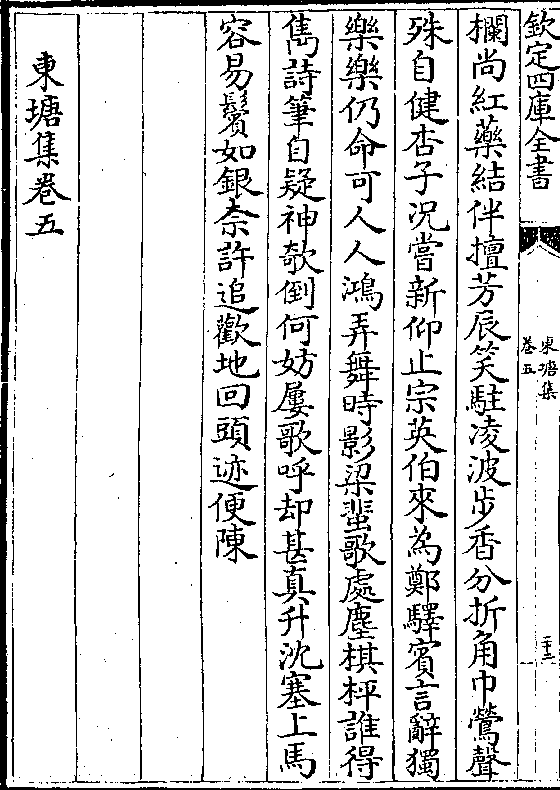 欽定四庫全書
東塘集
卷五
二十二
欄尚紅藥結伴擅芳辰笑駐凌波步香分折角巾鶯聲
殊自健杏子況嘗新仰止宗英伯來為鄭驛賓言辭獨
樂樂仍命可人人鴻弄舞時影梁蜚歌處塵棋枰誰得
雋詩筆自疑神欹倒何妨屢歌呼却甚真升沈塞上馬
容易鬢如銀柰許追歡地回頭迹便陳
東塘集卷五